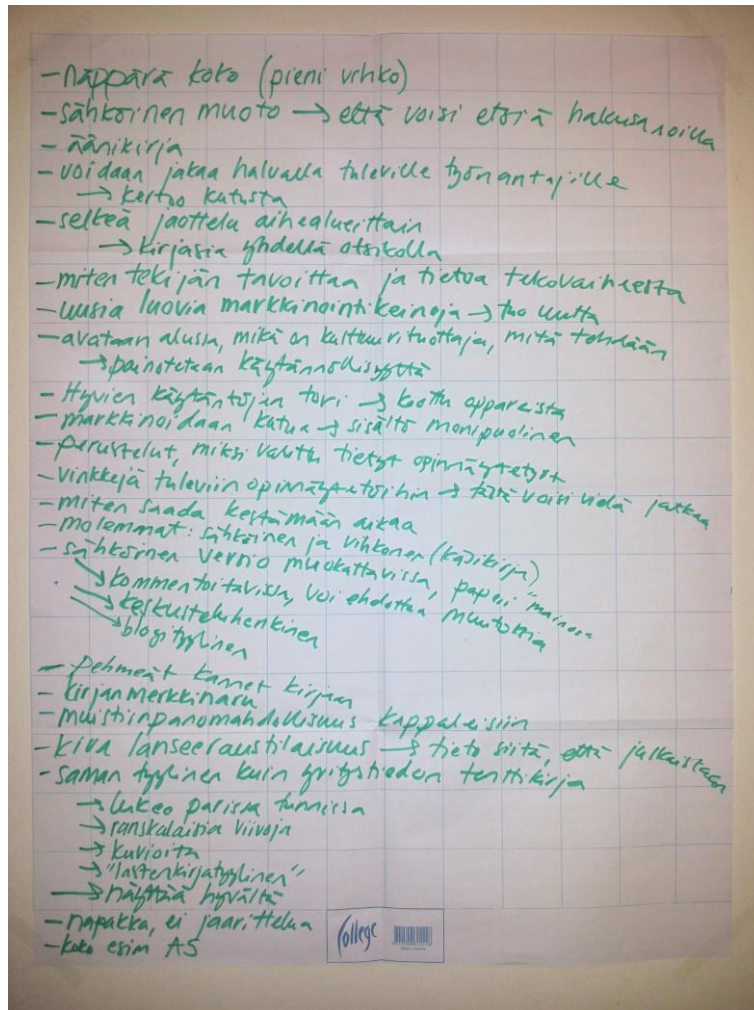 - näppärä koko (pieni vihko)
- sähköinen muoto → että voisi etsiä hakusanoilla
- äänikirja
- voidaan jakaa halvalla tuleville työnantajille
→ kertoo kutusta
- selkeä jaottelu aihealueittain
→ kirjasia yhdellä otsikolla
- miten tekijän tavoittaa ja tietoa tekovaiheesta
- uusia luovia markkinointikeinoja → tuo uutta
- avataan alussa, mikä on kulttuurituottaja, mitä tehdään
→ painotetaan käytännöllisyyttä
- Hyvien käytäntöjen tori → koottu oppareista
- markkinoidaan kutua → sisältö monipuolinen
- perustelut, miksi valittu tietyt opinnäytetyöt
- vinkkejä tuleviin opinnäytetöihin → tätä voisi vielä jatkaa
- miten saada kestämään aikaa
- molemmat: sähköinen ja vihkonen (käsikirja)
- sähköinen versio muokattavissa, paperi "mainos"
→ kommentoitavissa, voi ehdottaa muutoksia
→ keskusteluhenkinen
→ blogityylinen
- pehmeät kannet kirjaan
- kirjanmerkkinaru
- muistiinpanomahdollisuus kappaleisiin
- kiva lanseeraustilaisuus → tieto siitä, että julkaistaan
- saman tyylinen kuin yritystiedon tenttikirja
→ lukeo parissa tunnissa
→ ranskalaisia viivoja
→ kuvioita
→ "lastenkirjatyylinen"
→ näyttää hyvältä
- napakka, ei jaarittelua
- koko esim A5
College